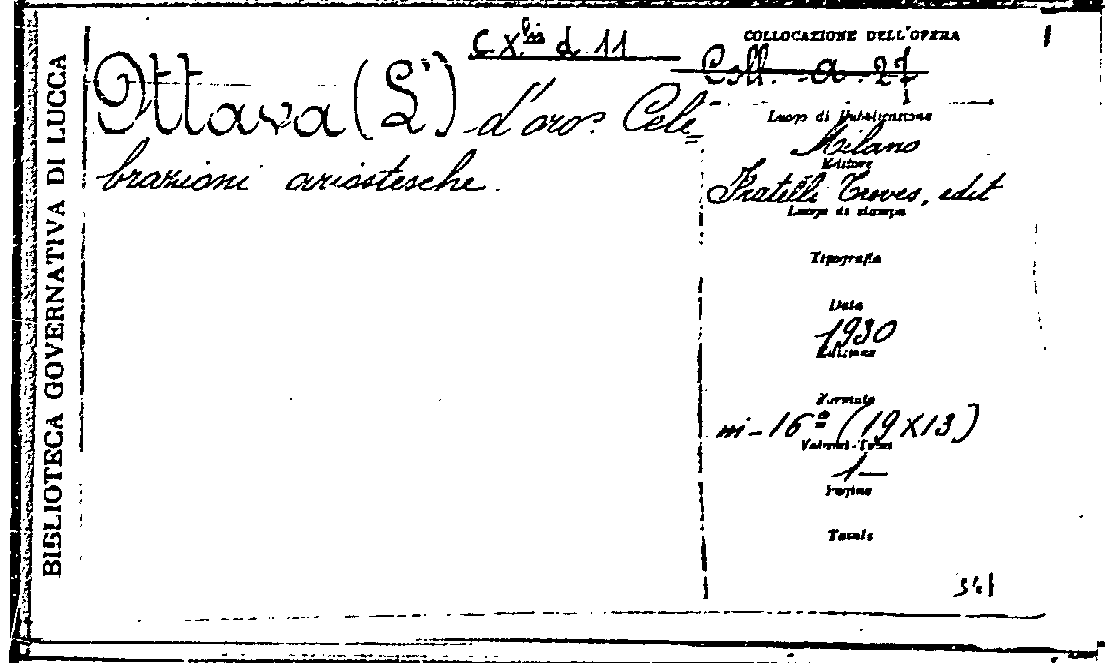 BIBLIOTECA GOVERNATIVA DI LUCCA
C X.bis d 11
Ottava (L') d'oro. Cele=
brazioni ariostesche.
COLLOCAZIONE DELL'OPERA
Coll. a. 27
Luogo di Pubblicazione
Milano
Editore
Fratelli Treves, edit
Luogo di stampa
Tipografia
Data
1930
Edizione
Formato
in-16º (19X13)
Volumi-Tomi
1-
Pagine
Tavole